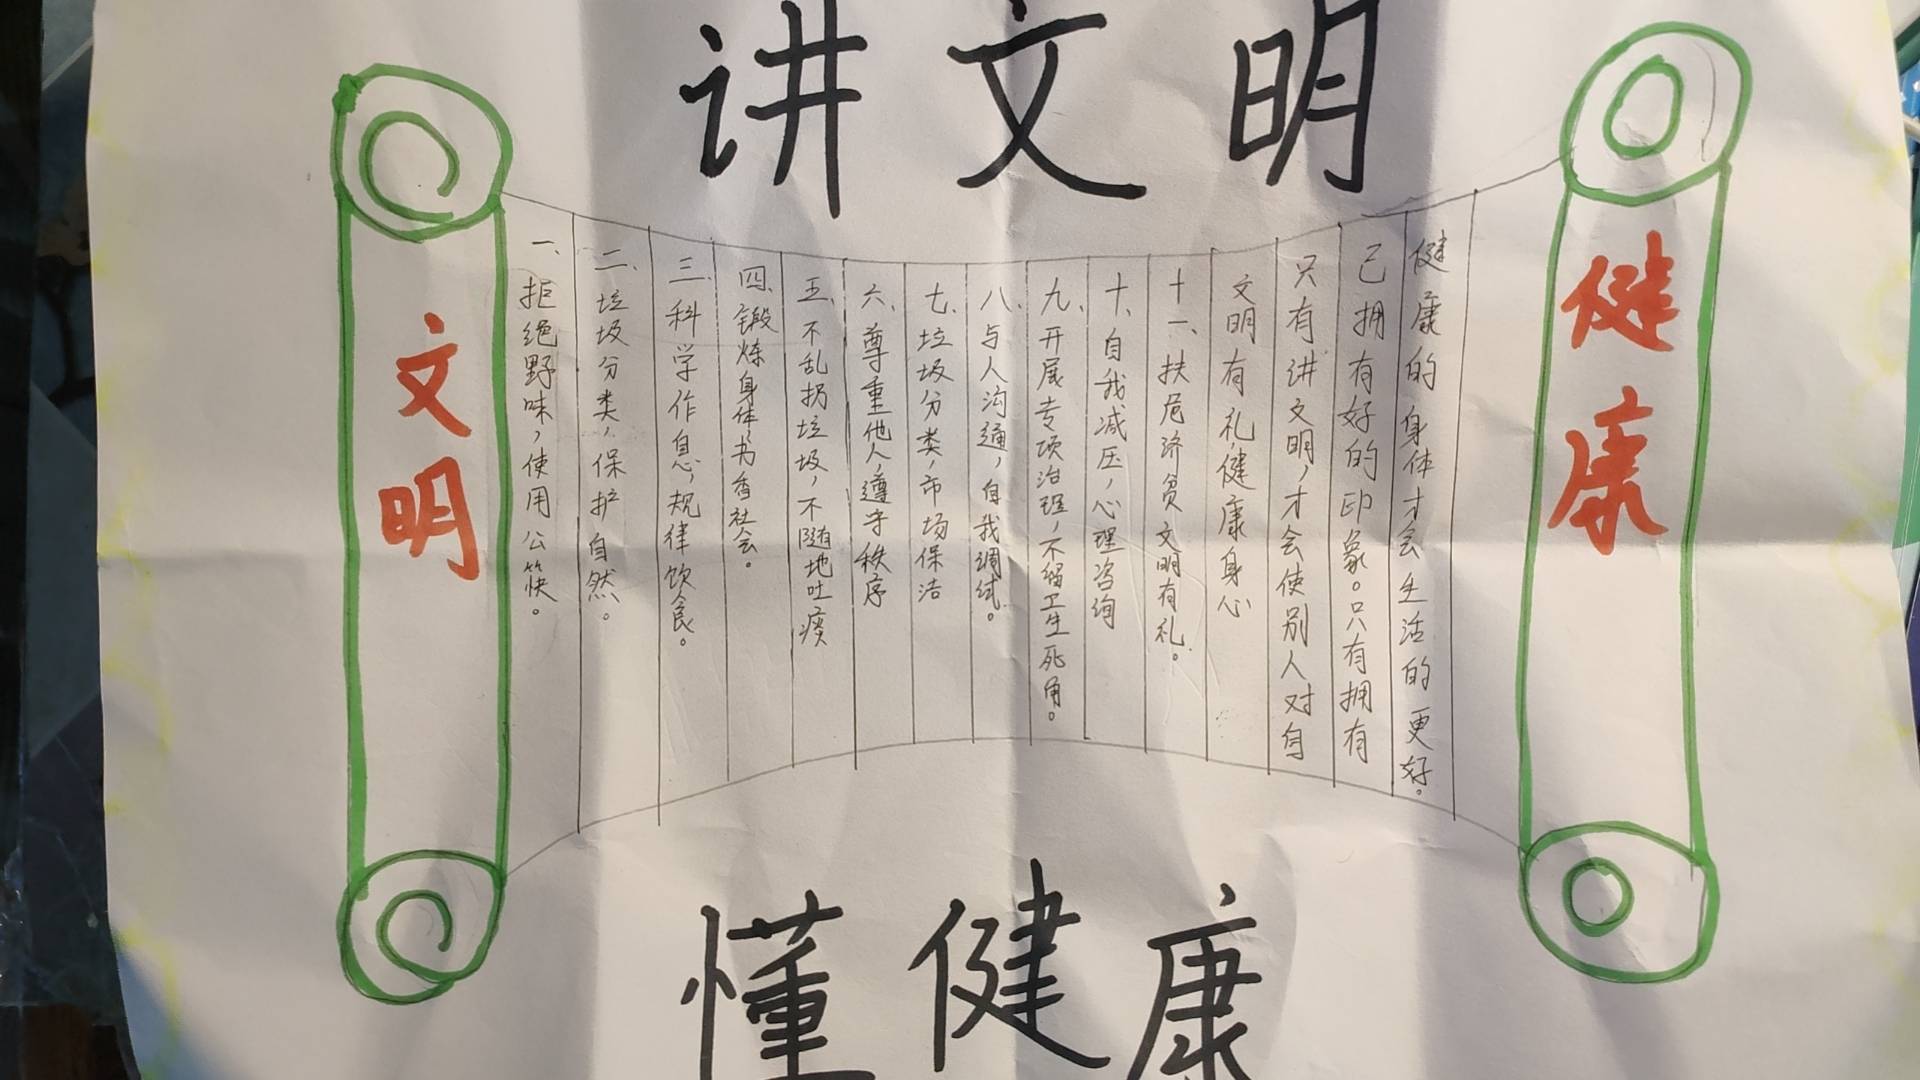 讲文明
文明
一、拒绝野味,使用公筷。
二、垃圾分类,保护自然。
三、科学作息,规律饮食。
四、锻炼身体,书香社会。
五、不乱拐垃圾,不随地吐痰
六、尊重他人,遵守秩序
七、垃圾分类,市场保洁
八、与人沟通,自我调试。
九、开展专项治理,不留卫生死角。
十、自我减压,心理咨询
十一、扶危济贫 文明有礼。
文明有礼,健康身心
只有讲文明,才会使别人对自
己拥有好的印象。只有拥有
健康的身体才会生活的更好。
健康
懂健康